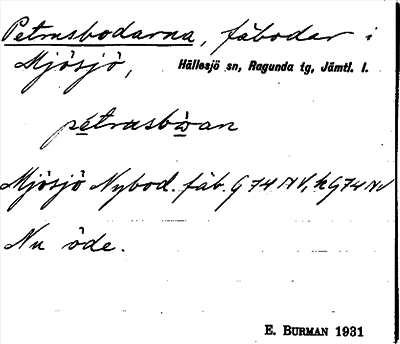 Petrusbodarna, fäbodar i
Mjösjö, Hällesjö sn, Ragunda tg, Jämtl. l.
petrusbòan
Mjösjö Nybod. fäb. G 74 NV, h G 74 NV
Nu öde.
E. BURMAN 1931